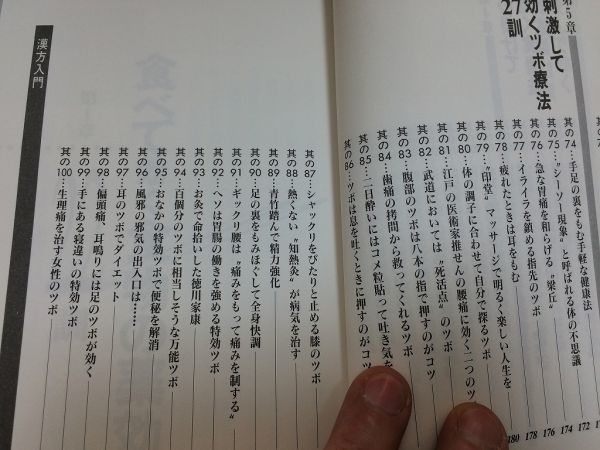 第5章
刺激して
効くツボ療法
27訓
其の74…手足の裏をもむ手軽な健康法
其の75…“シーソー現象”と呼ばれる体の不思議
其の76…急な胃痛を和らげる“梁丘”
其の77…イライラを鎮める指先のツボ
其の78…疲れたときは耳をもむ
其の79…“印堂”マッサージで明るく楽しい人生を
其の80…体の調子に合わせて自分で探るツボ
其の81…江戸の医術家推せんの腰痛に効く二つのツ
其の82…武道においては“死活点”のツボ
其の83…腹部のツボは八本の指で押すのがコツ
其の84…歯痛の拷問から救ってくれるツボ
其の85…二日酔いにはコメ粒貼って吐き気を
其の86…ツボは息を吐くときに押すのがコツ
172
174
176
178
180
其の87…シャックリをぴたりと止める膝のツボ
其の88…熱くない“知熱灸”が病気を治す
其の89…青竹踏んで精力強化
其の90…足の裏をもみほぐして全身快調
其の91…ギックリ腰は“痛みをもって痛みを制する”
其の92…ヘソは胃腸の働きを強める特効ツボ
其の93…お灸で命拾いした徳川家康
其の94…百個分のツボに相当しそうな万能ツボ
其の95…おなかの特効ツボで便秘を解消
其の96…風邪の邪気の出入口は……
其の97…耳のツボでダイエット
其の98…偏頭痛、耳鳴りには足のツボが効く
其の99…手にある寝違いの特効ツボ
其の100…生理痛を治す女性のツボ
漢方入門